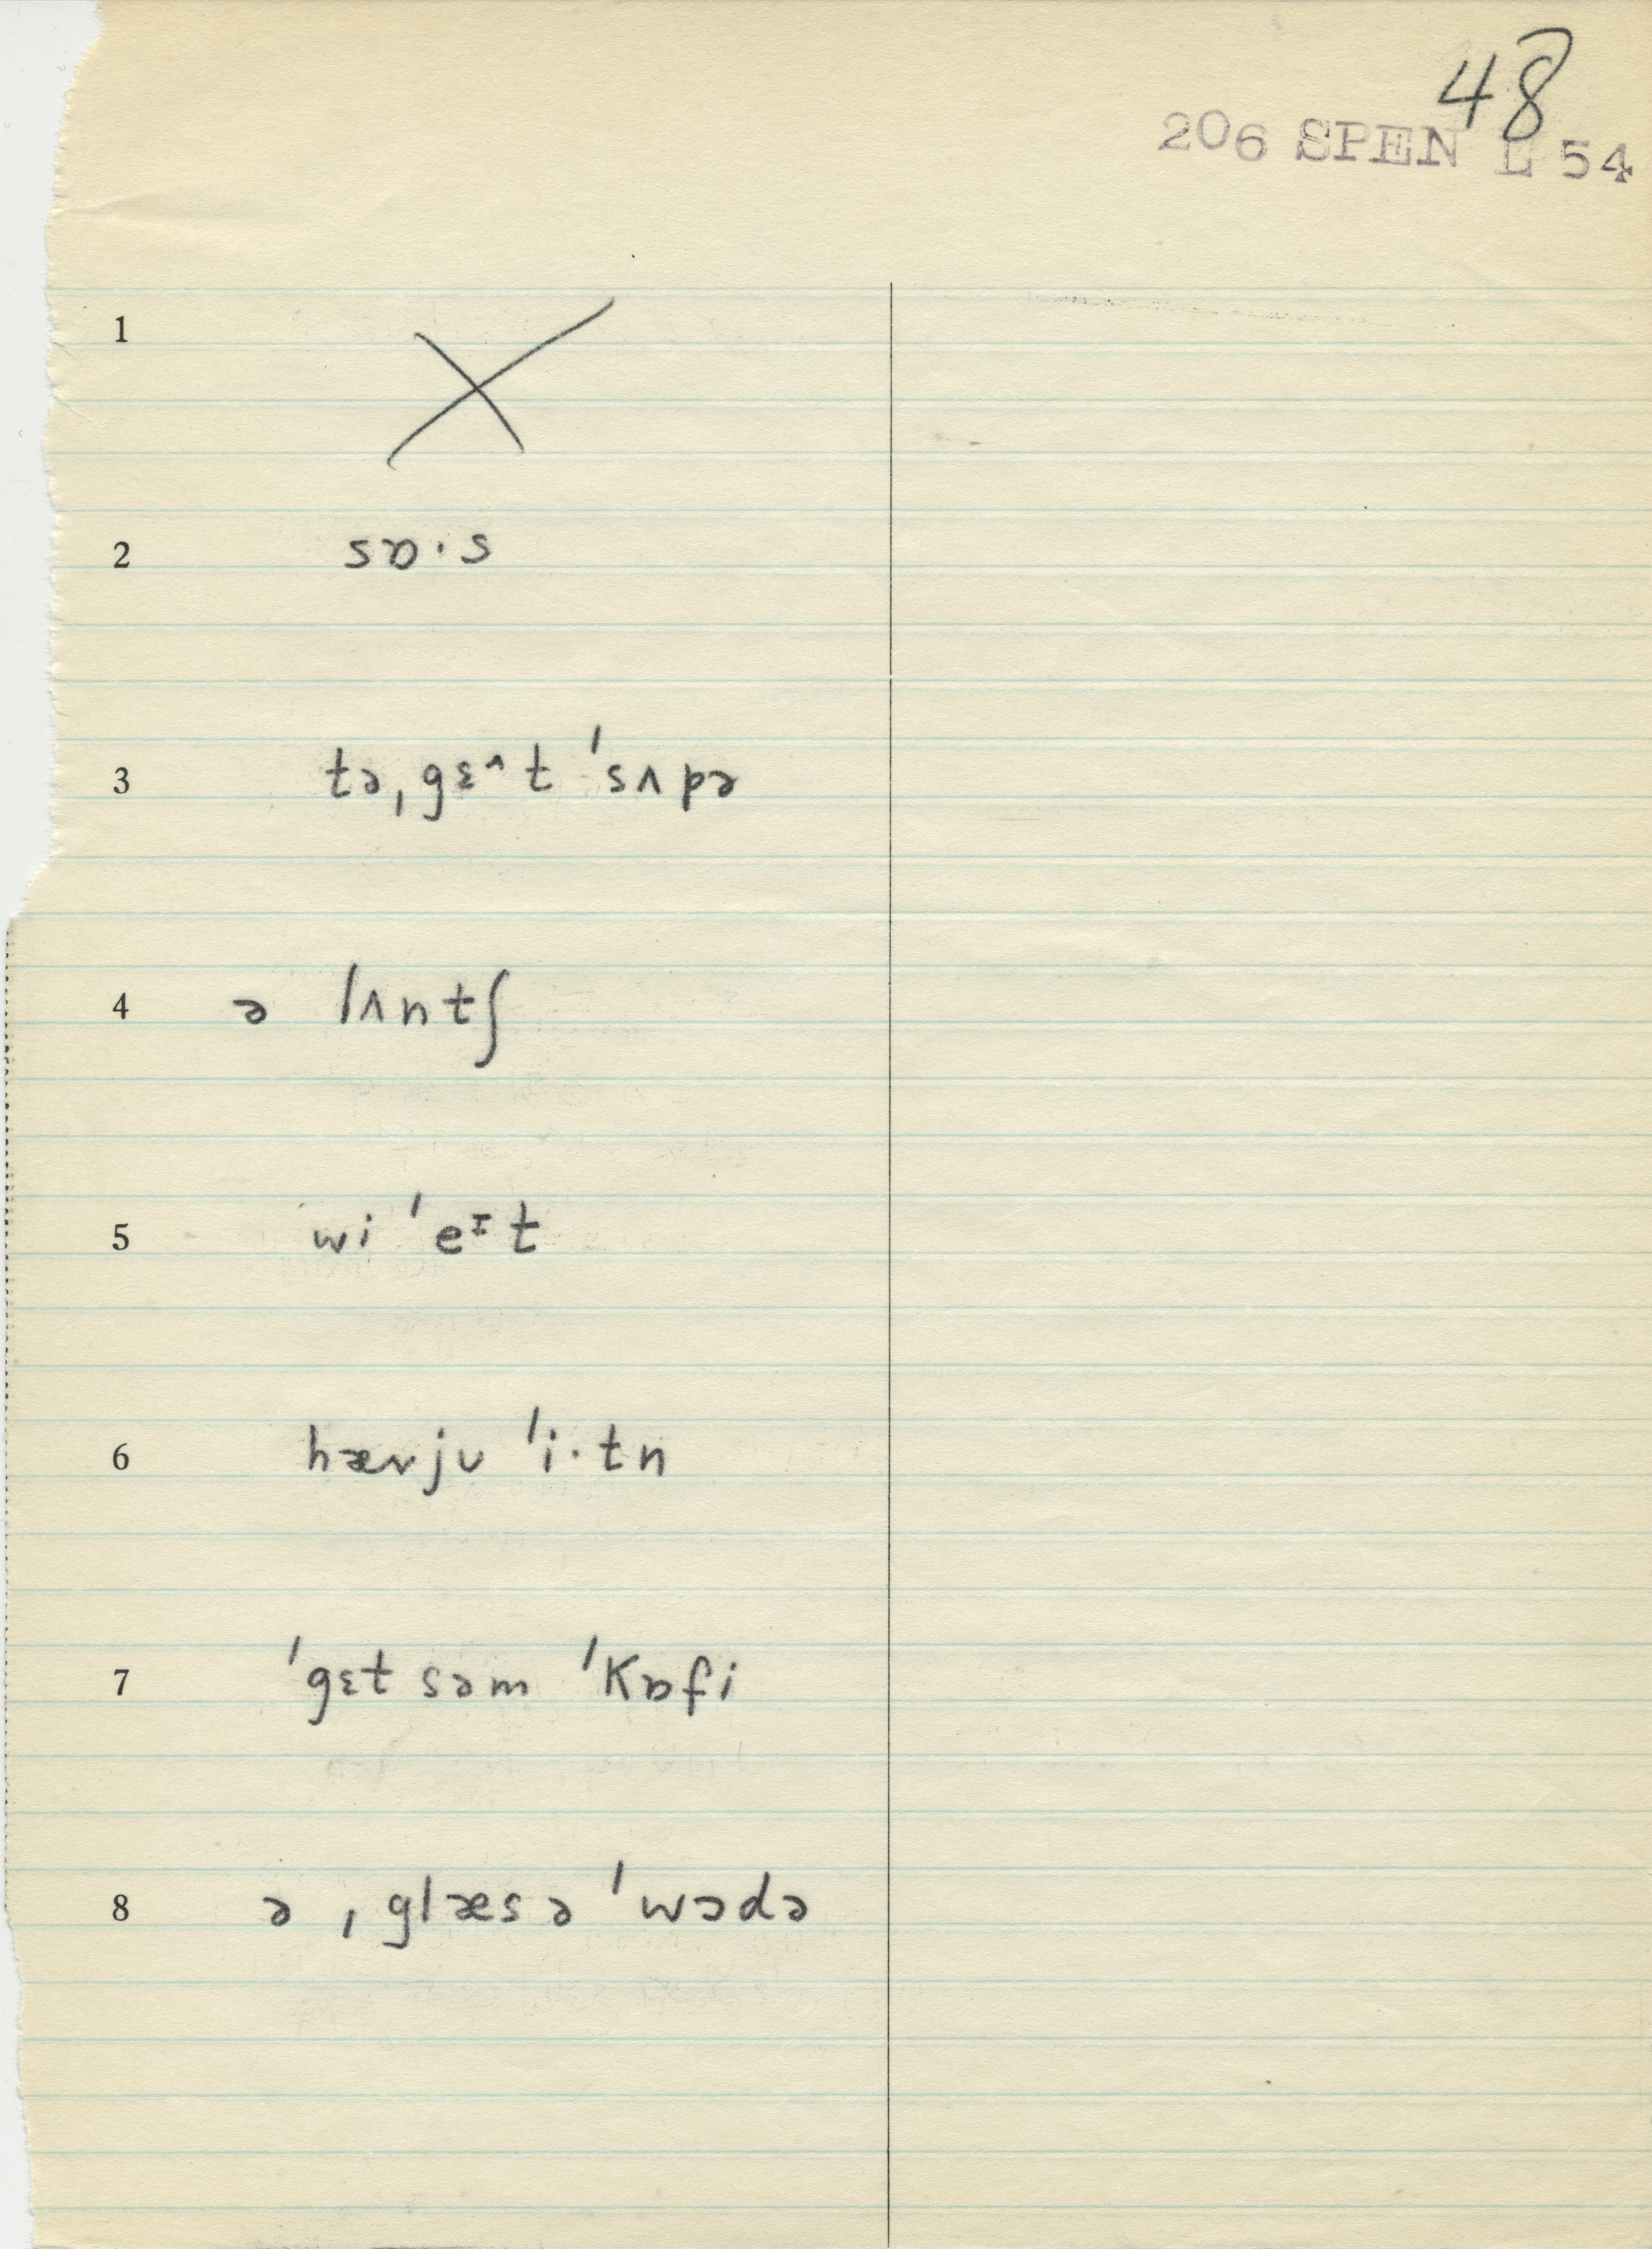 48
206 SPEN L 54
1 X
2 sɒ·s
3 tə ˌgɛ^t ˈsʌpə
4 ə lʌntʃ
5 wi ˈeᶦt
6 hævjʊ ˈi·tn
7 ˈgɛt səm ˈkɒfi
8 ə ˌglæs ə ˈwɔdə